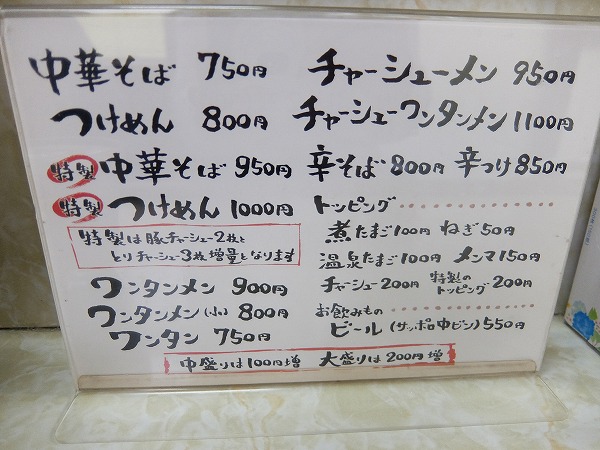 中華そば 750円
つけめん 800円
特製 中華そば 950円
特製 つけめん 1000円
特製は豚チャーシュー2枚と
とりチャーシュー3枚増量となります
ワンタンメン 900円
ワンタンメン(小) 800円
ワンタン 750円
チャーシューメン 950円
チャーシューワンタンメン 1100円
辛そば 800円 辛つけ 850円
トッピング
煮たまご 100円 ねぎ 50円
温泉たまご 100円 メンマ 150円
チャーシュー 200円 特製のトッピング 200円
お飲みもの
ビール(サッポロ中ビン) 550円
中盛りは100円増 大盛りは200円増